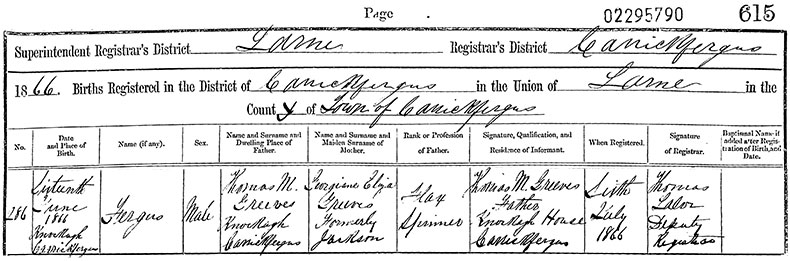 Page 02295790 615
Superintendent Registrar's District Larne Registrar's District Carrickfergus
1866. Births Registered in the District of Carrickfergus in the Union of Larne in the
County of Town of Carrickfergus
No. Date and Place of Birth. Name (if any). Sex. Name and Surname and Dwelling Place of Father. Name and Surname and Maiden Surname of Mother. Rank or Profession of Father. Signature, Qualification, and Residence of Informant. When Registered. Signature of Registrar. Baptismal Name if added after Registration of Birth, and Date.
286
Sixteenth
June
1866
Knockagh
Carrickfergus
Fergus
Male
Thomas M.
Greeves
Knockagh
Carrickfergus
Georgiana Eliza
Greeves
Formerly
Jackson
Flax
Spinner
Thomas M. Greeves
Father
Knockagh House
Carrickfergus
Sixth
July
1866
Thomas
Deputy
Registrar